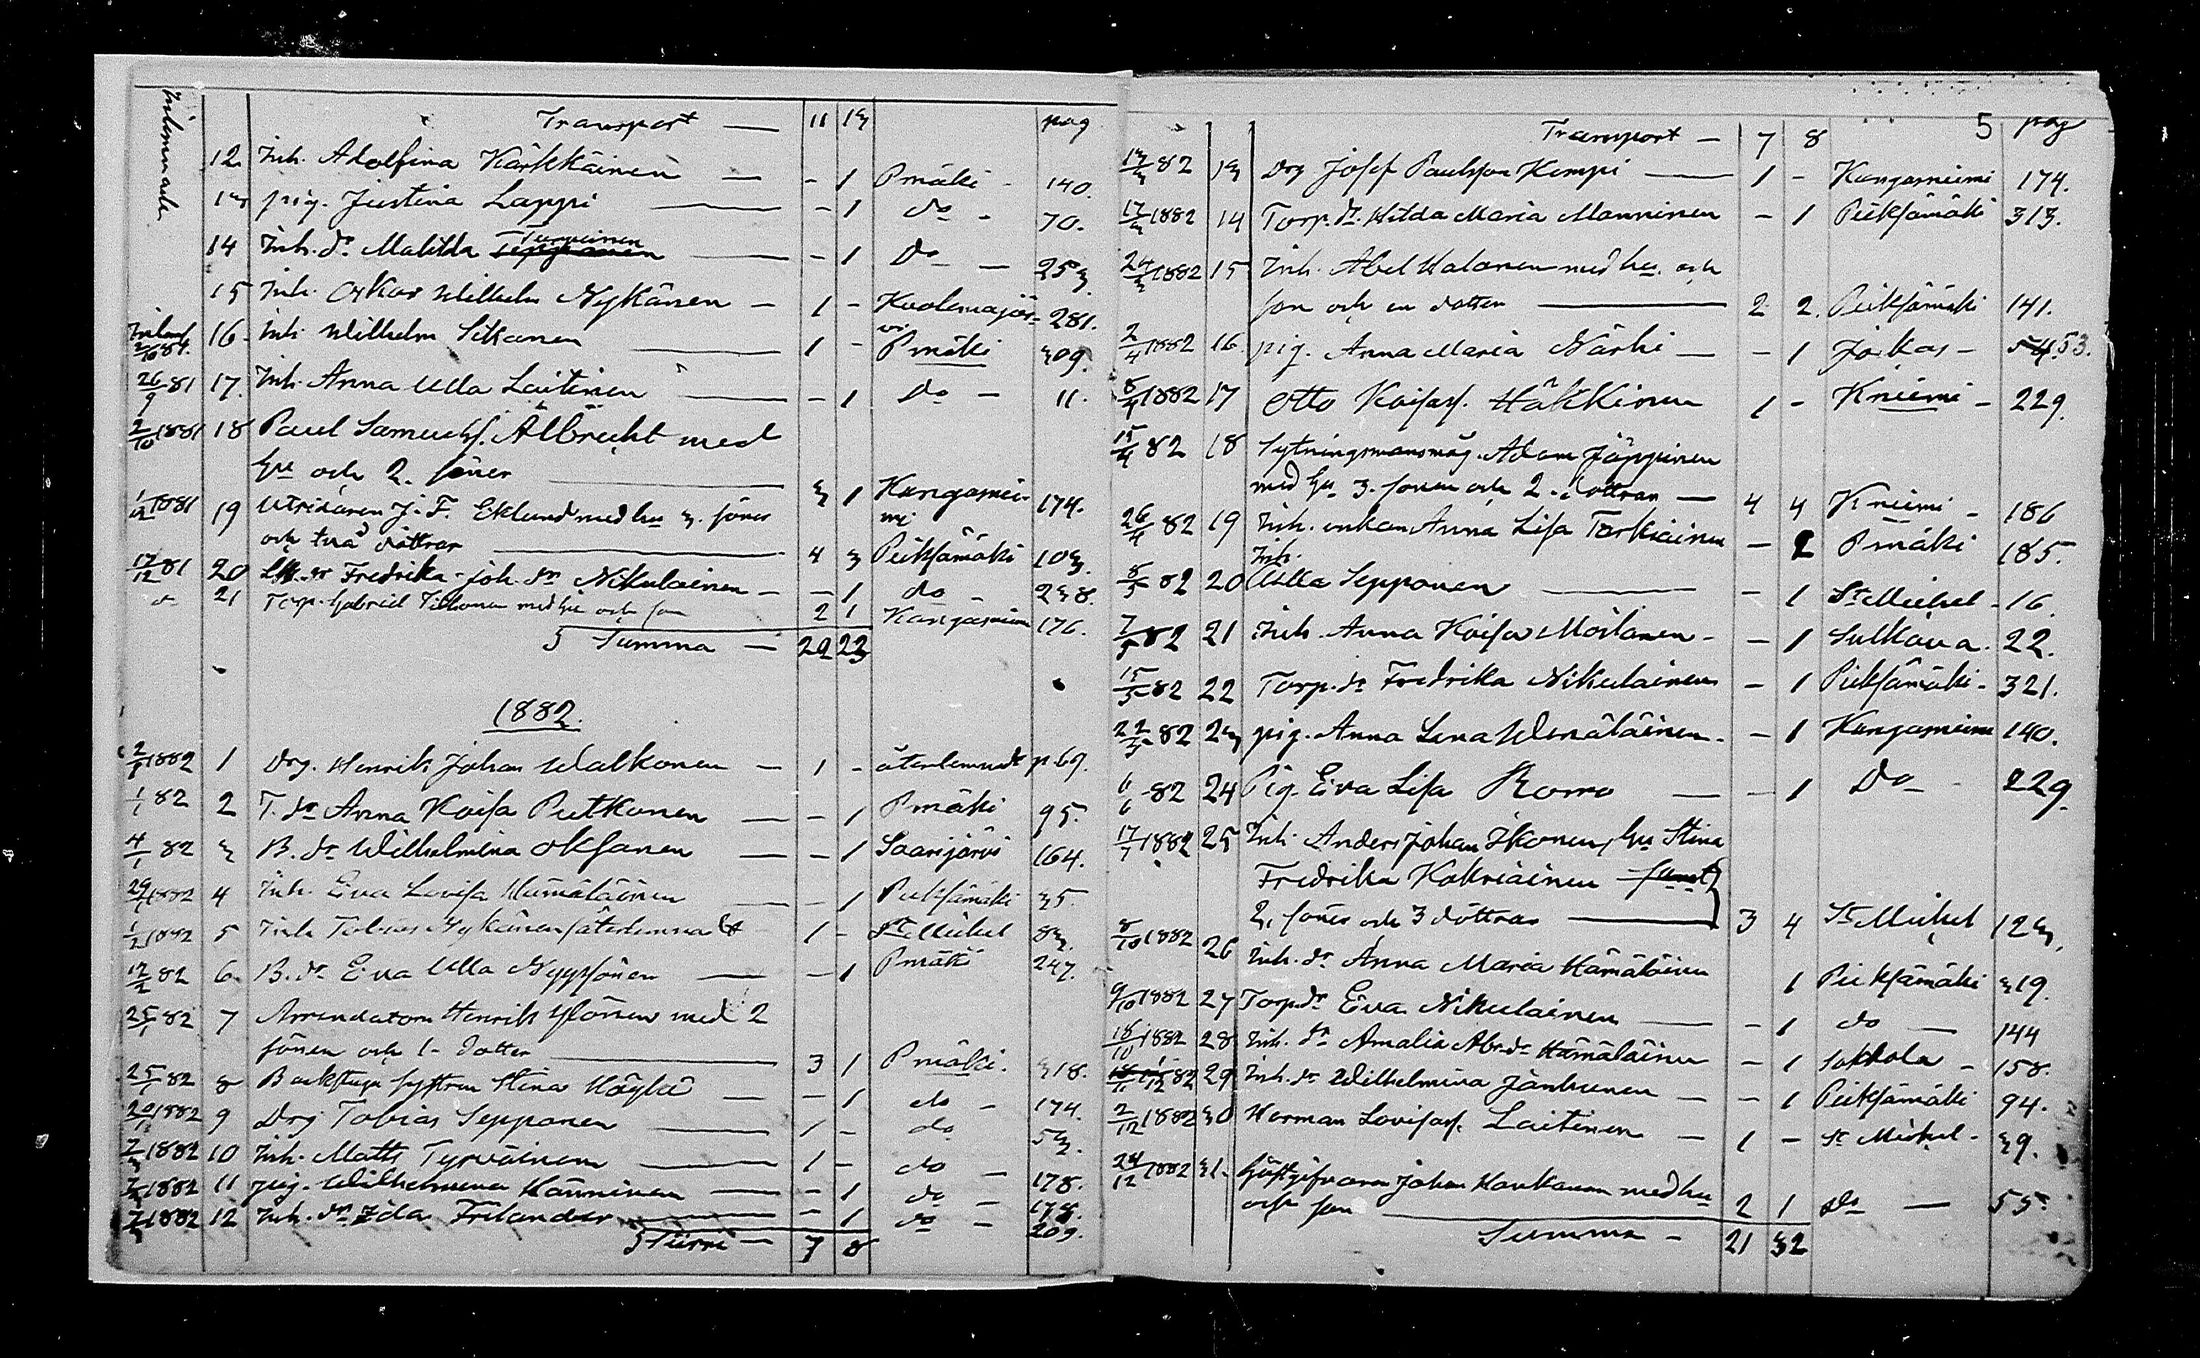 Inkommande
Transport — 11 13 pag
12 Inh. Adolfina Kärkkäinen — - 1 Pmäki - 140.
13 pig. Justina Lappi — - 1 do - 70.
14 Inh. dr Matilda Turpeinen — - 1 Do - 253
15 Inh. Oskar Wilhelm Nykänen — 1 - Kuolemajär-
vi 281.
16. Inh. Wilhelm Sikanen — 1 - Pmäki 309.
26/9 81 17. Inh. Anna Ulla Laitinen — - 1 Do - 11.
2/10 1881 18 Paul Samuelsf. Albrecht med
hu och 2. söner — 3 1 Kangasnie-
mi 174.
1/12 1881 19 J. F. Eklund med hu 3. söner
och två döttrar — 4 3 Pieksämäki 103.
17/12 81 20 Fredrika Joh. dr Nikulainen — - 1 do - 238.
do 21 Torp. Gabriel med hu och son 2 1 Kangasniemi 176.
Summa — 29 23
1882.
2/1 1882 1 Drg. Henrik Johan Walkonen — 1 - återkommit p. 69.
1/1 82 2 T. dr Anna Kaisa Putkonen — - 1 Pmäki 95.
4/1 82 3 B. dr Wilhelmina Oksanen — - 1 Saarijärvi 164.
29/1 1882 4 Inh. Eva Lovisa Hämäläinen — - 1 Pieksämäki 35.
1/2 1882 5 Inh. Tobias Nykänen 1 - St Michel 83.
12/2 82 6. B. dr Eva Ulla Nyyssönen — - 1 Pmäki 247.
25/1 82 7 Arrendatorn Henrik Ylönen med 2
söner och 1 dotter — 3 1 Pmäki. 318.
25/1 82 8 Stina — - 1 do - 174.
1882 9 Drg Tobias Sepponen — 1 - do 53.
1882 10 Inh. Matts Tyrväinen — 1 - do - 178.
1882 11 pig. Wilhelmina Manninen — - 1 do - 178.
1882 12 Inh. dr Ida Frilander — - 1 do - 209.
7 8
5
Transport — 7 8 pag
82 13 Drg Josef Paulsson Kempi — 1 - Kangasniemi 174.
17/3 1882 14 Torp. dr. Hilda Maria Manninen - 1 Pieksämäki 313.
24/3 1882 15 Inh. Abel Halonen med hu. och
son och en dotter — 2 2. Pieksämäki 141.
2/4 1882 16. pig. Anna Maria Närhi — - 1 Jokas - 53.
8/4 1882 17 Otto Kaisasf. Häkkinen 1 - Kniemi - 229.
15/4 82 18 Sytningsmansmåg. Adam Jäppinen
med hu 3. söner och 2. döttrar — 4 4 Kniemi - 186
26/4 82 19 Inh. enkan Anna Lisa Tarkiainen - 2 Pmäki 185.
8/5 82 20 Inh. Ulla Sepponen — - 1 St Michel - 16.
7/5 82 21 Inh. Anna Kaisa Moilanen - - 1 Sulkava. 22.
15/5 82 22 Torp. dr Fredrika Nikulainen - 1 Pieksämäki - 321.
22/5 82 23 pig. Anna Lena Wenäläinen. - 1 Kangasniemi 140.
6/6 82 24 Pig. Eva Lisa Romo — - 1 Do - 229.
17/7 1882 25 Inh. Anders Johan Ikonen, hu Stina
Fredrika Kokriainen samt
2, söner och 3 döttrar — 3 4 St Michel 123.
8/10 1882 26 Inh. dr Anna Maria Hämäläinen 1 Pieksämäki 319.
9/10 1882 27 Torp dr Eva Nikulainen — - 1 do — 144
18/10 1882 28 Inh. dr Amalia Abr. dr Hämäläinen - 1 Sakkola - 158.
1/12 82 29 Inh. dr Wilhelmina Janhunen — - 1 Pieksämäki 94.
2/12 1882 30 Herman Lovisasf. Laitinen — 1 - St Michel - 39.
24/12 1882 31. Gästgifvaren Johan Haukanen med hu
och son — 2 1 do — 55.
Summa — 21 32